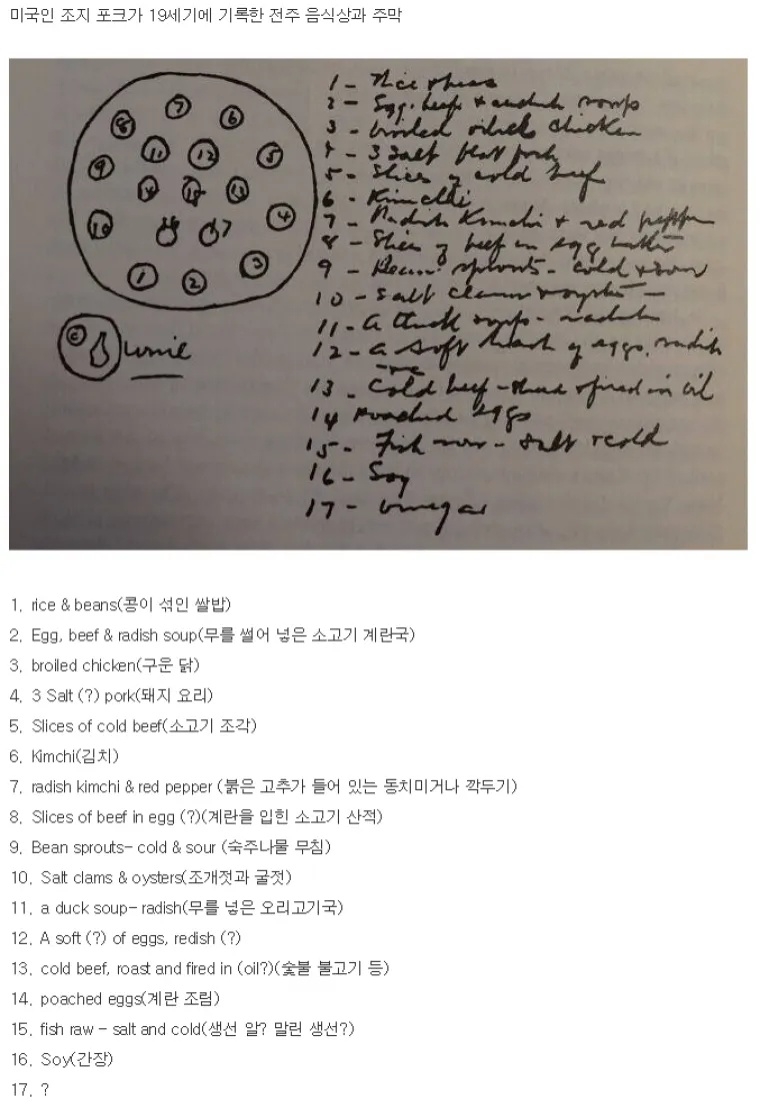 미국인 조지 포크가 19세기에 기록한 전주 음식상과 주막
7
8
6
11
12
5
9
14
15
13
10
16
17
4
1
2
3
C wine
1 - Rice & beans
2 - Egg, beef & radish soup
3 broiled chicken
4 - 3 Salt pork
5 - Slices of cold beef
6 - Kimchi
7 - Radish Kimchi & red pepper
8 - Slices of beef in egg batter
9 - Bean sprouts - cold & sour
10 - Salt clams & oysters -
11 - A duck soup - radish
12 - A soft hash of eggs, radish
13 - Cold beef - and fired in oil
14 Poached eggs
15 - Fish - salt & cold
16 - Soy
17 - Vinegar
1. rice & beans(콩이 섞인 쌀밥)
2. Egg, beef & radish soup(무를 썰어 넣은 소고기 계란국)
3. broiled chicken(구운 닭)
4. 3 Salt (?) pork(돼지 요리)
5. Slices of cold beef(소고기 조각)
6. Kimchi(김치)
7. radish kimchi & red pepper (붉은 고추가 들어 있는 동치미거나 깍두기)
8. Slices of beef in egg (?)(계란을 입힌 소고기 산적)
9. Bean sprouts- cold & sour (숙주나물 무침)
10. Salt clams & oysters(조개젓과 굴젓)
11. a duck soup- radish(무를 넣은 오리고기국)
12. A soft (?) of eggs, redish (?)
13. cold beef, roast and fired in (oil?)(숯불 불고기 등)
14. poached eggs(계란 조림)
15. fish raw - salt and cold(생선 알? 말린 생선?)
16. Soy(간장)
17. ?